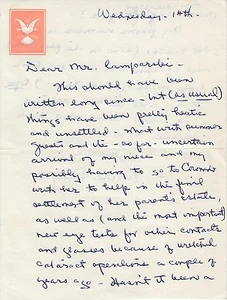 Wednesday - 14th.
Dear Mr. Camparski -
This should have been
written long since - but (as usual)
things have been pretty hectic
and unsettled - What with summer
guests and the - so far - uncertain
arrival of my niece and my
possibly having to go to
with her to help in the final
settlement of her parents estate,
as well as (and the most important)
new eye tests for other contacts
and glasses because of
cataract operations a couple of
years ago - Hasn't it been a